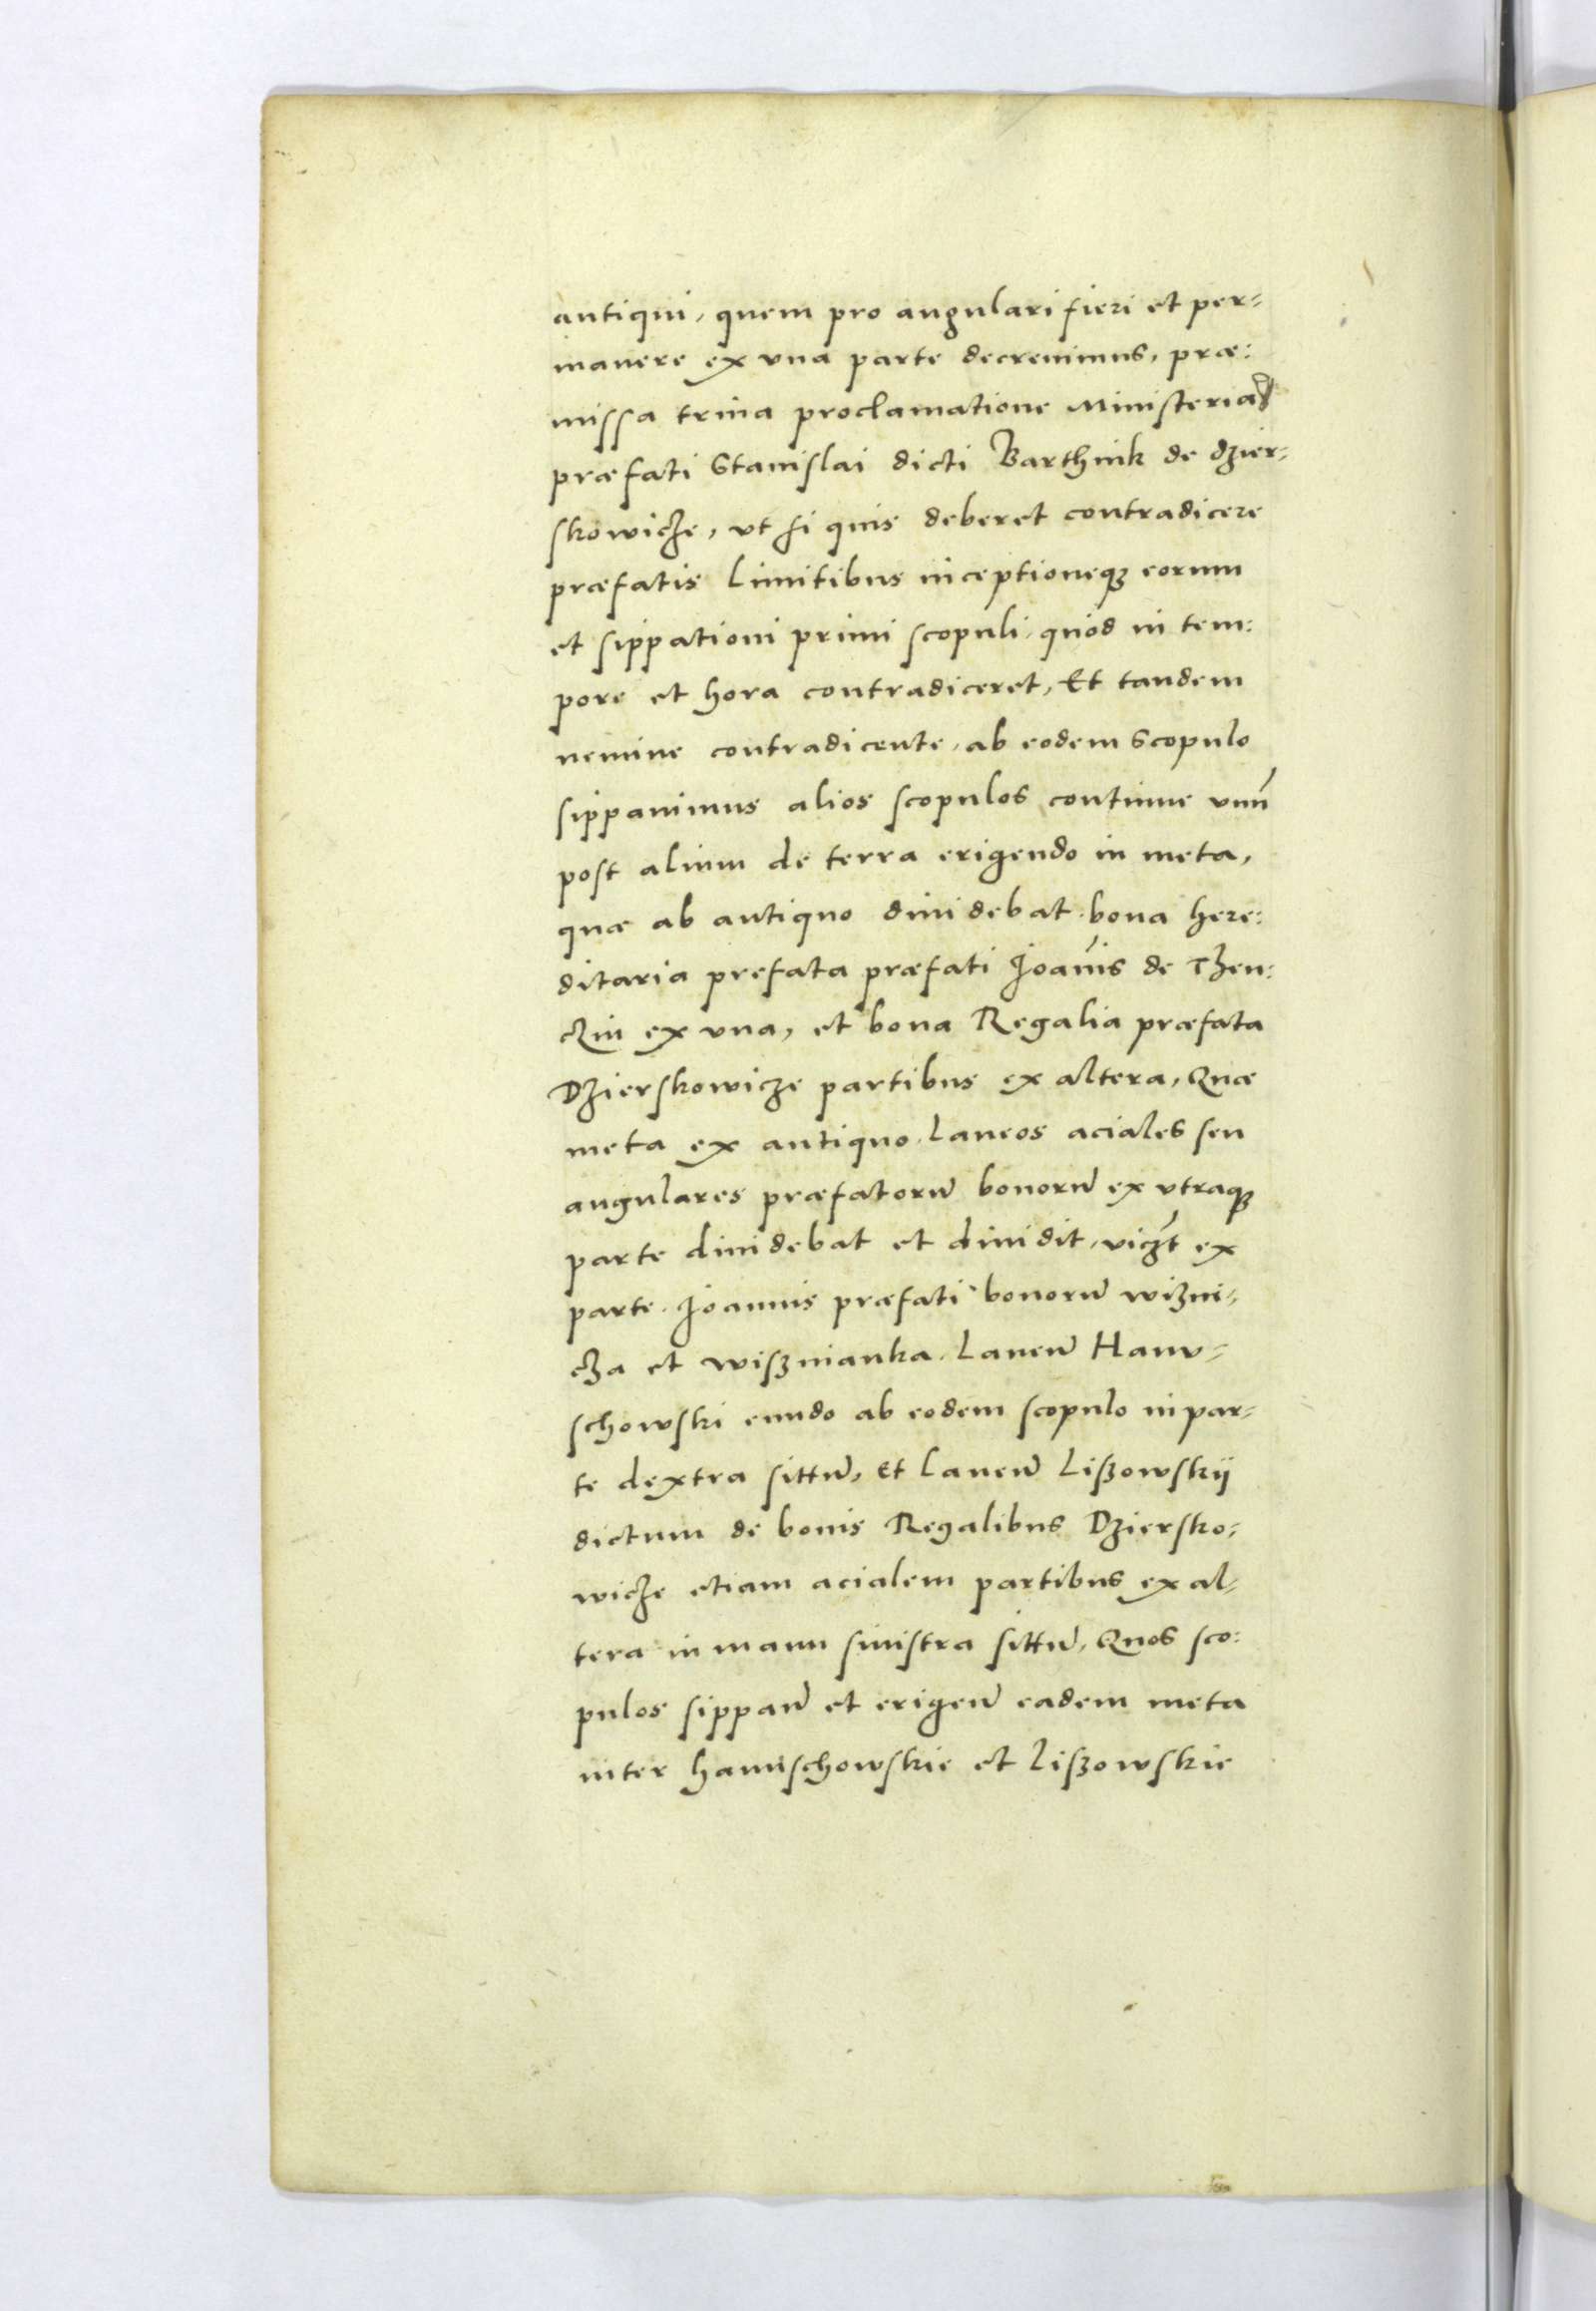 antiqui, quem pro angulari fieri et per-
manere ex vna parte decreuimus, præ:
missa trina proclamatione Ministerial
præfati Stanislai dicti Barthnik de dzier-
skowicze, vt si quis deberet contradicere
præfatis limitibus inceptioneq; eorum
et sippationi primi scopuli, quod in tem:
pore et hora contradiceret, Et tandem
nemine contradicente, ab eodem Scopulo
sippauimus alios scopulos continue vnū
post alium de terra erigendo in meta,
quæ ab antiquo diuidebat bona here:
ditaria prefata præfati Joānis de Then:
czin ex vna, et bona Regalia præfata
Dzierskowicze partibus ex altera, Quæ
meta ex antiquo laneos aciales seu
angulares præfatorū bonorū ex vtraq;
parte diuidebat et diuidit, viczt ex
parte Joannis præfati bonorū wizni-
cza et wisznianka laneū Hanu-
schowski eundo ab eodem scopulo in par-
te dextra sittū, et laneū Liszowskij
dictum de bonis Regalibus Dziersko-
wicze etiam acialem partibus ex al-
tera in manu sinistra sittū, Quos sco:
pulos sippanū et erigenū eadem meta
inter hanuschowskie et liszowskie